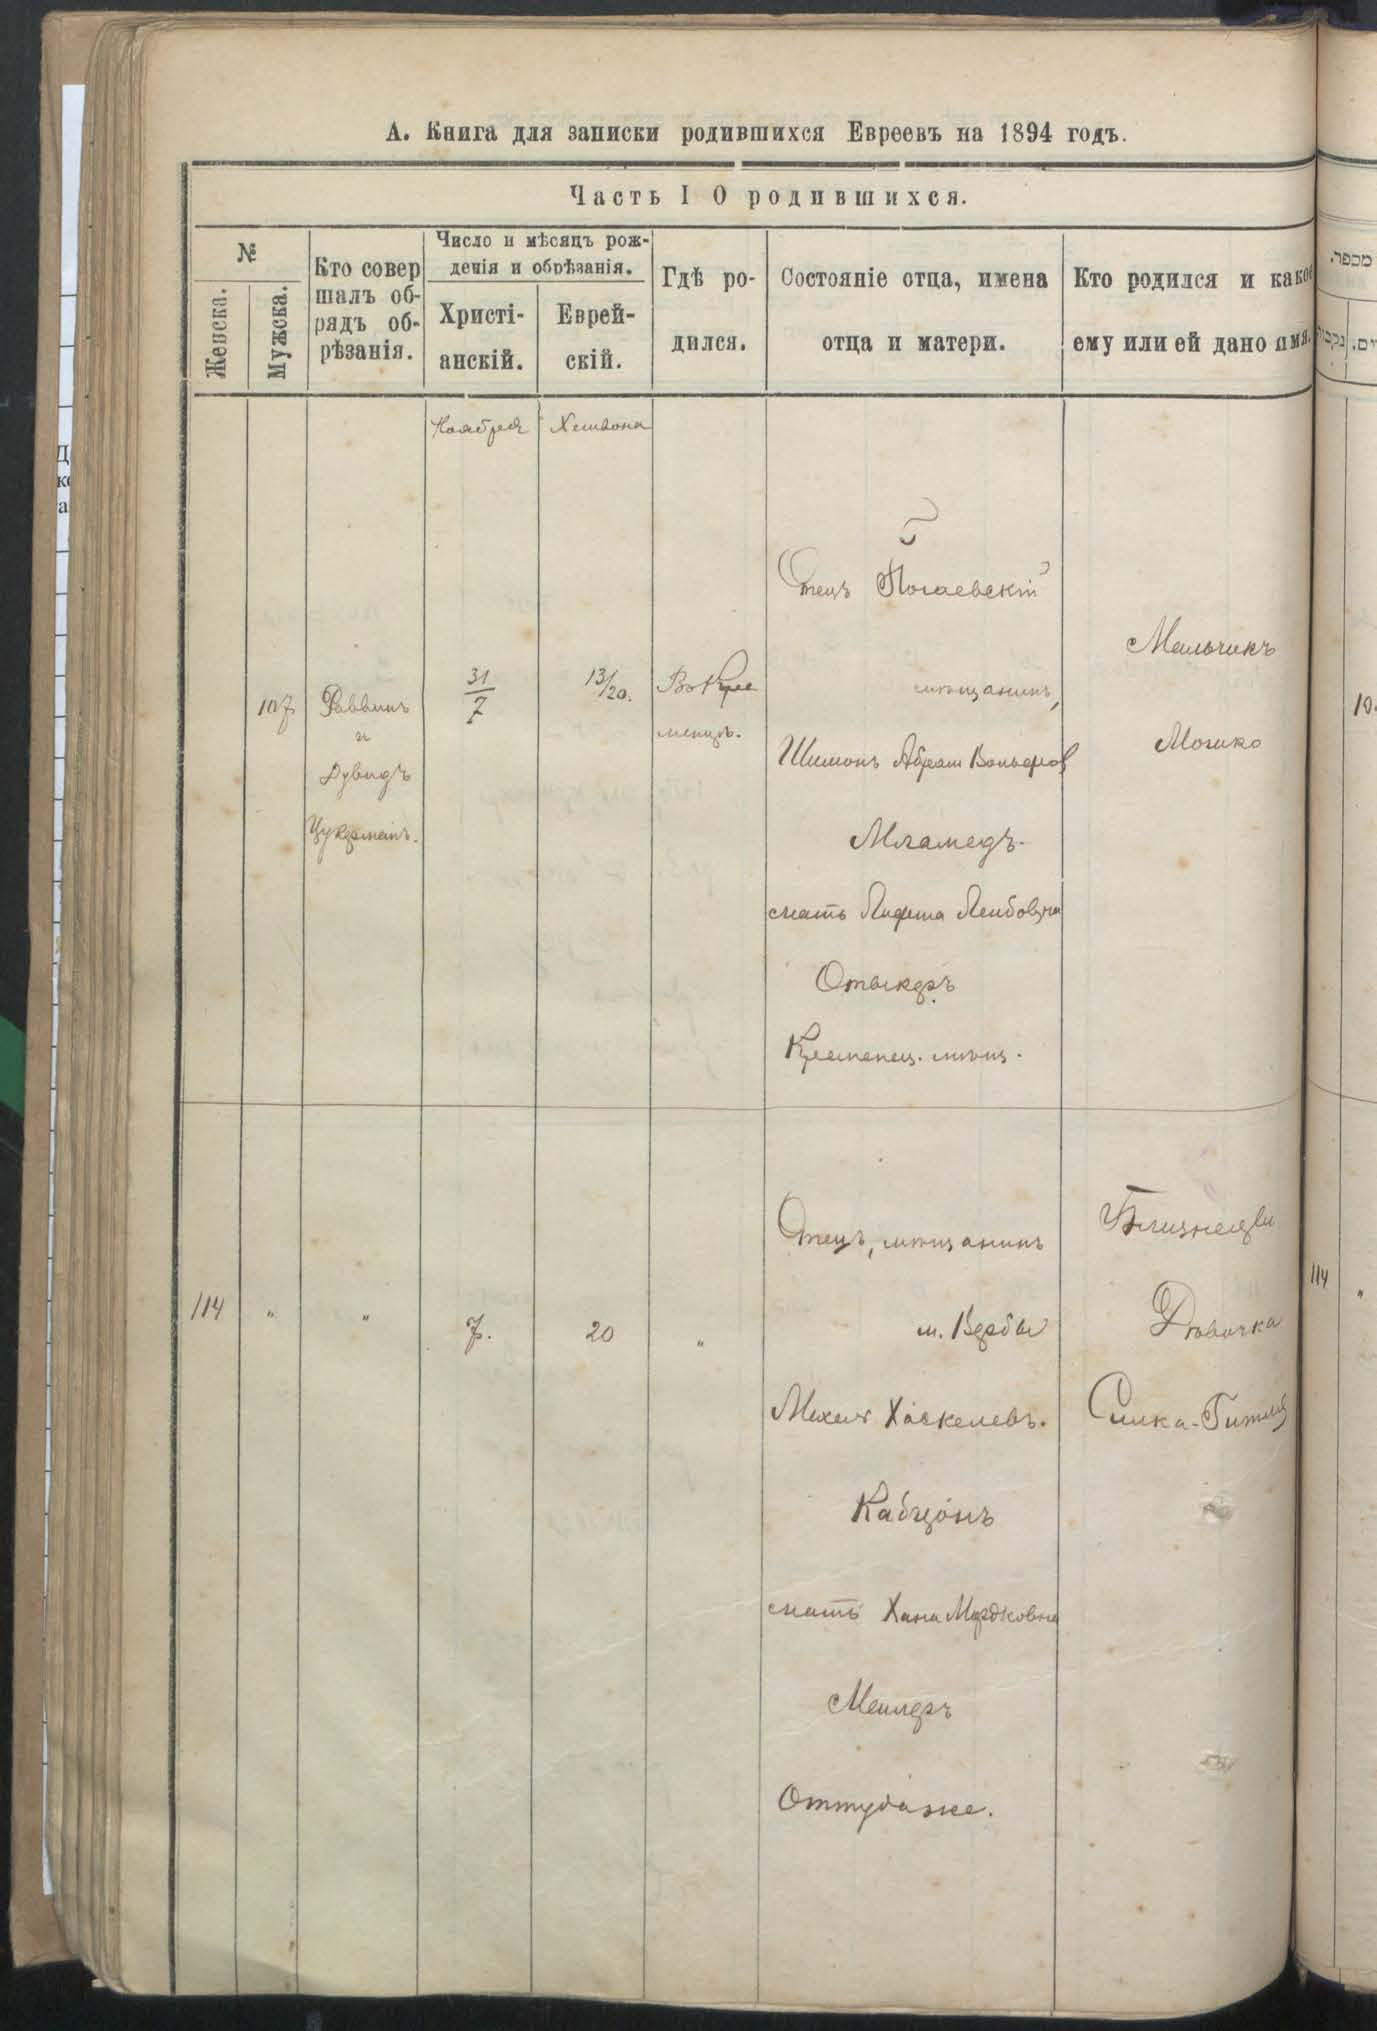 А. Книга для записки родившихся Евреевъ на 1894 годъ.
Часть I О родившихся.
№
Женска.
Мужска.
Кто совер
шалъ об-
рядъ об-
рѣзанія.
Число и мѣсяцъ рож-
денія и обрѣзанія.
Христі-
анскій.
Еврей-
скій.
Гдѣ ро-
дился.
Состояніе отца, имена
отца и матери.
Кто родился и какое
ему или ей дано имя.
Ноября
Хешвона
107
Раввинъ
и
Дувидъ
Цукерманъ.
31
7
13/20.
Въ Кре
менцѣ.
Отецъ
мѣщанинъ,
Шимонъ Абрам Вольфов
Мламедъ
мать Лейбовна
Кременец. мѣщ.
Мальчикъ
Мошко
114
"
"
7.
20
"
Отецъ, мѣщанинъ
м. Вербы
Мехель Хаскелевъ.
Кабцонъ
мать Хана Мордковна
Мейлеръ
Оттудаже.
Близнецы
Дѣвочка
Симка-Гитля
מספר.
נקבות
ים.
114
"